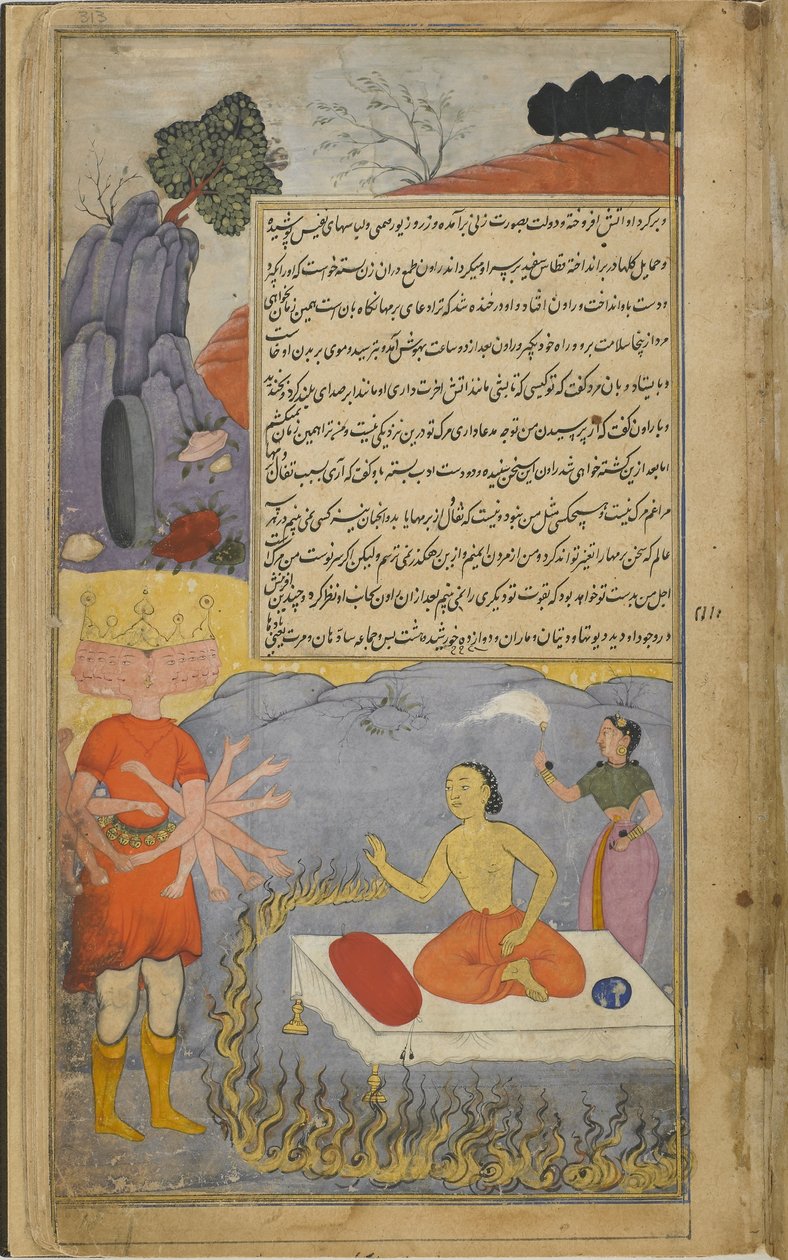 313
و برکرد او آتش افروخته و دولت بصورت زنی برآمده و زر و زیور و لباسهای نفیس پوشیده
و حمایل گلها در بر انداخته قطاس سفید بر سر او میکرداند راون طمع دران زن بسته خواست که او را بگیرد
و دست باو انداخت و راون افتاد و او در خنده شد که ترا دعای برمها نگاه بان است همین زمان
مرد از اینجا سلامت برو و راه خود بگیر و راون بعد از دو ساعت بهوش آمد و بترسید و موی بر بدن او خاست
و بایستاد و بان مرد گفت که تو کیستی که تابشی مانند آتش آخرت داری او مانند ابر صدای بلند کرد و بخندید
و با راون گفت که از پرسیدن من توجه مدعا داری مرگ تو درین نزدیکی نیست و من ترا همین زمان نمیکشم
اما بعد ازین کشته خواهی شد راون این سخن شنیده و دو دست ادب بسته باو گفت که آری بسبب تفال
مرا غم مرگ نیست و هیچکسی مثل من نبود و نیست که تفاول از برمها یابد و انچنان نیز کسی نمی بینم در همه
عالم که سخن برمها را تغییر تواند کرد و من از مردن ایمنم و ازین رهگذر نمی ترسم ولیکن اگر سرنوشت من مرگ است
اجل من بدست تو خواهد بود که بقوت تو دیگری را نمی بینم بعد ازان راون بجانب او نظر کرده و چندین آفرینش
در وجود او دید دیوتها و دیتان و ماران و دوازده خورشید و هشت بس و جماعه سادهان و مرت یعنی بادها